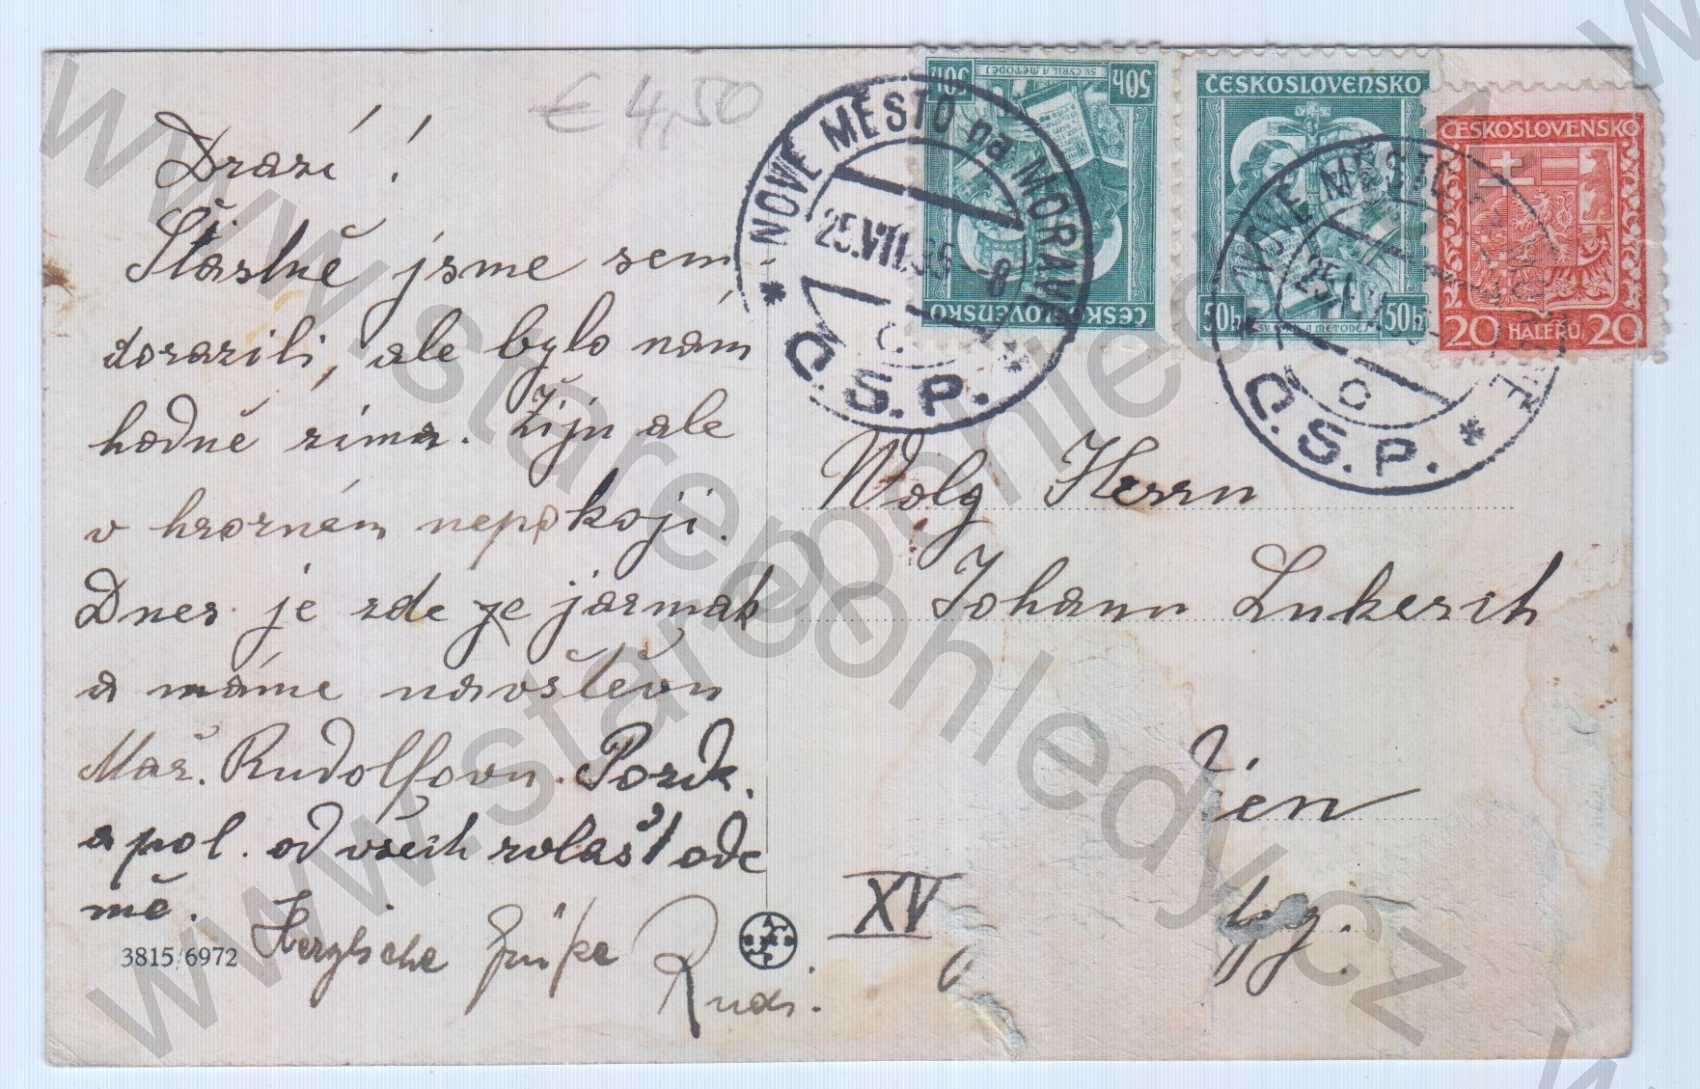 € 4,50
Drazí!
Šťastně jsme sem
dorazili, ale bylo nám
hodně zima. Žiju ale
v hrozném nepokoji.
Dnes je zde je jarmak
a máme navštěvu
Mař. Rudolfovu. Pozdr.
a pol. od všech zvlášť ode
mě. Herzliche Grüße
Rudi.
3815/6972
50h SV. CYRIL A METODĚJ 50h
ČESKOSLOVENSKO
ČESKOSLOVENSKO
50h SV. CYRIL A METODĚJ 50h
ČESKOSLOVENSKO
20 HALÉŘŮ 20
NOVÉ MĚSTO na MORAVĚ
25.VII.35 -8
c
* Č.S.P. *
NOVÉ MĚSTO
25.VII.
c
* Č.S.P. *
Wolg Herrn
Johann Lukesch
Wien
XV
www.starepohledy.cz
www.starepohledy.cz